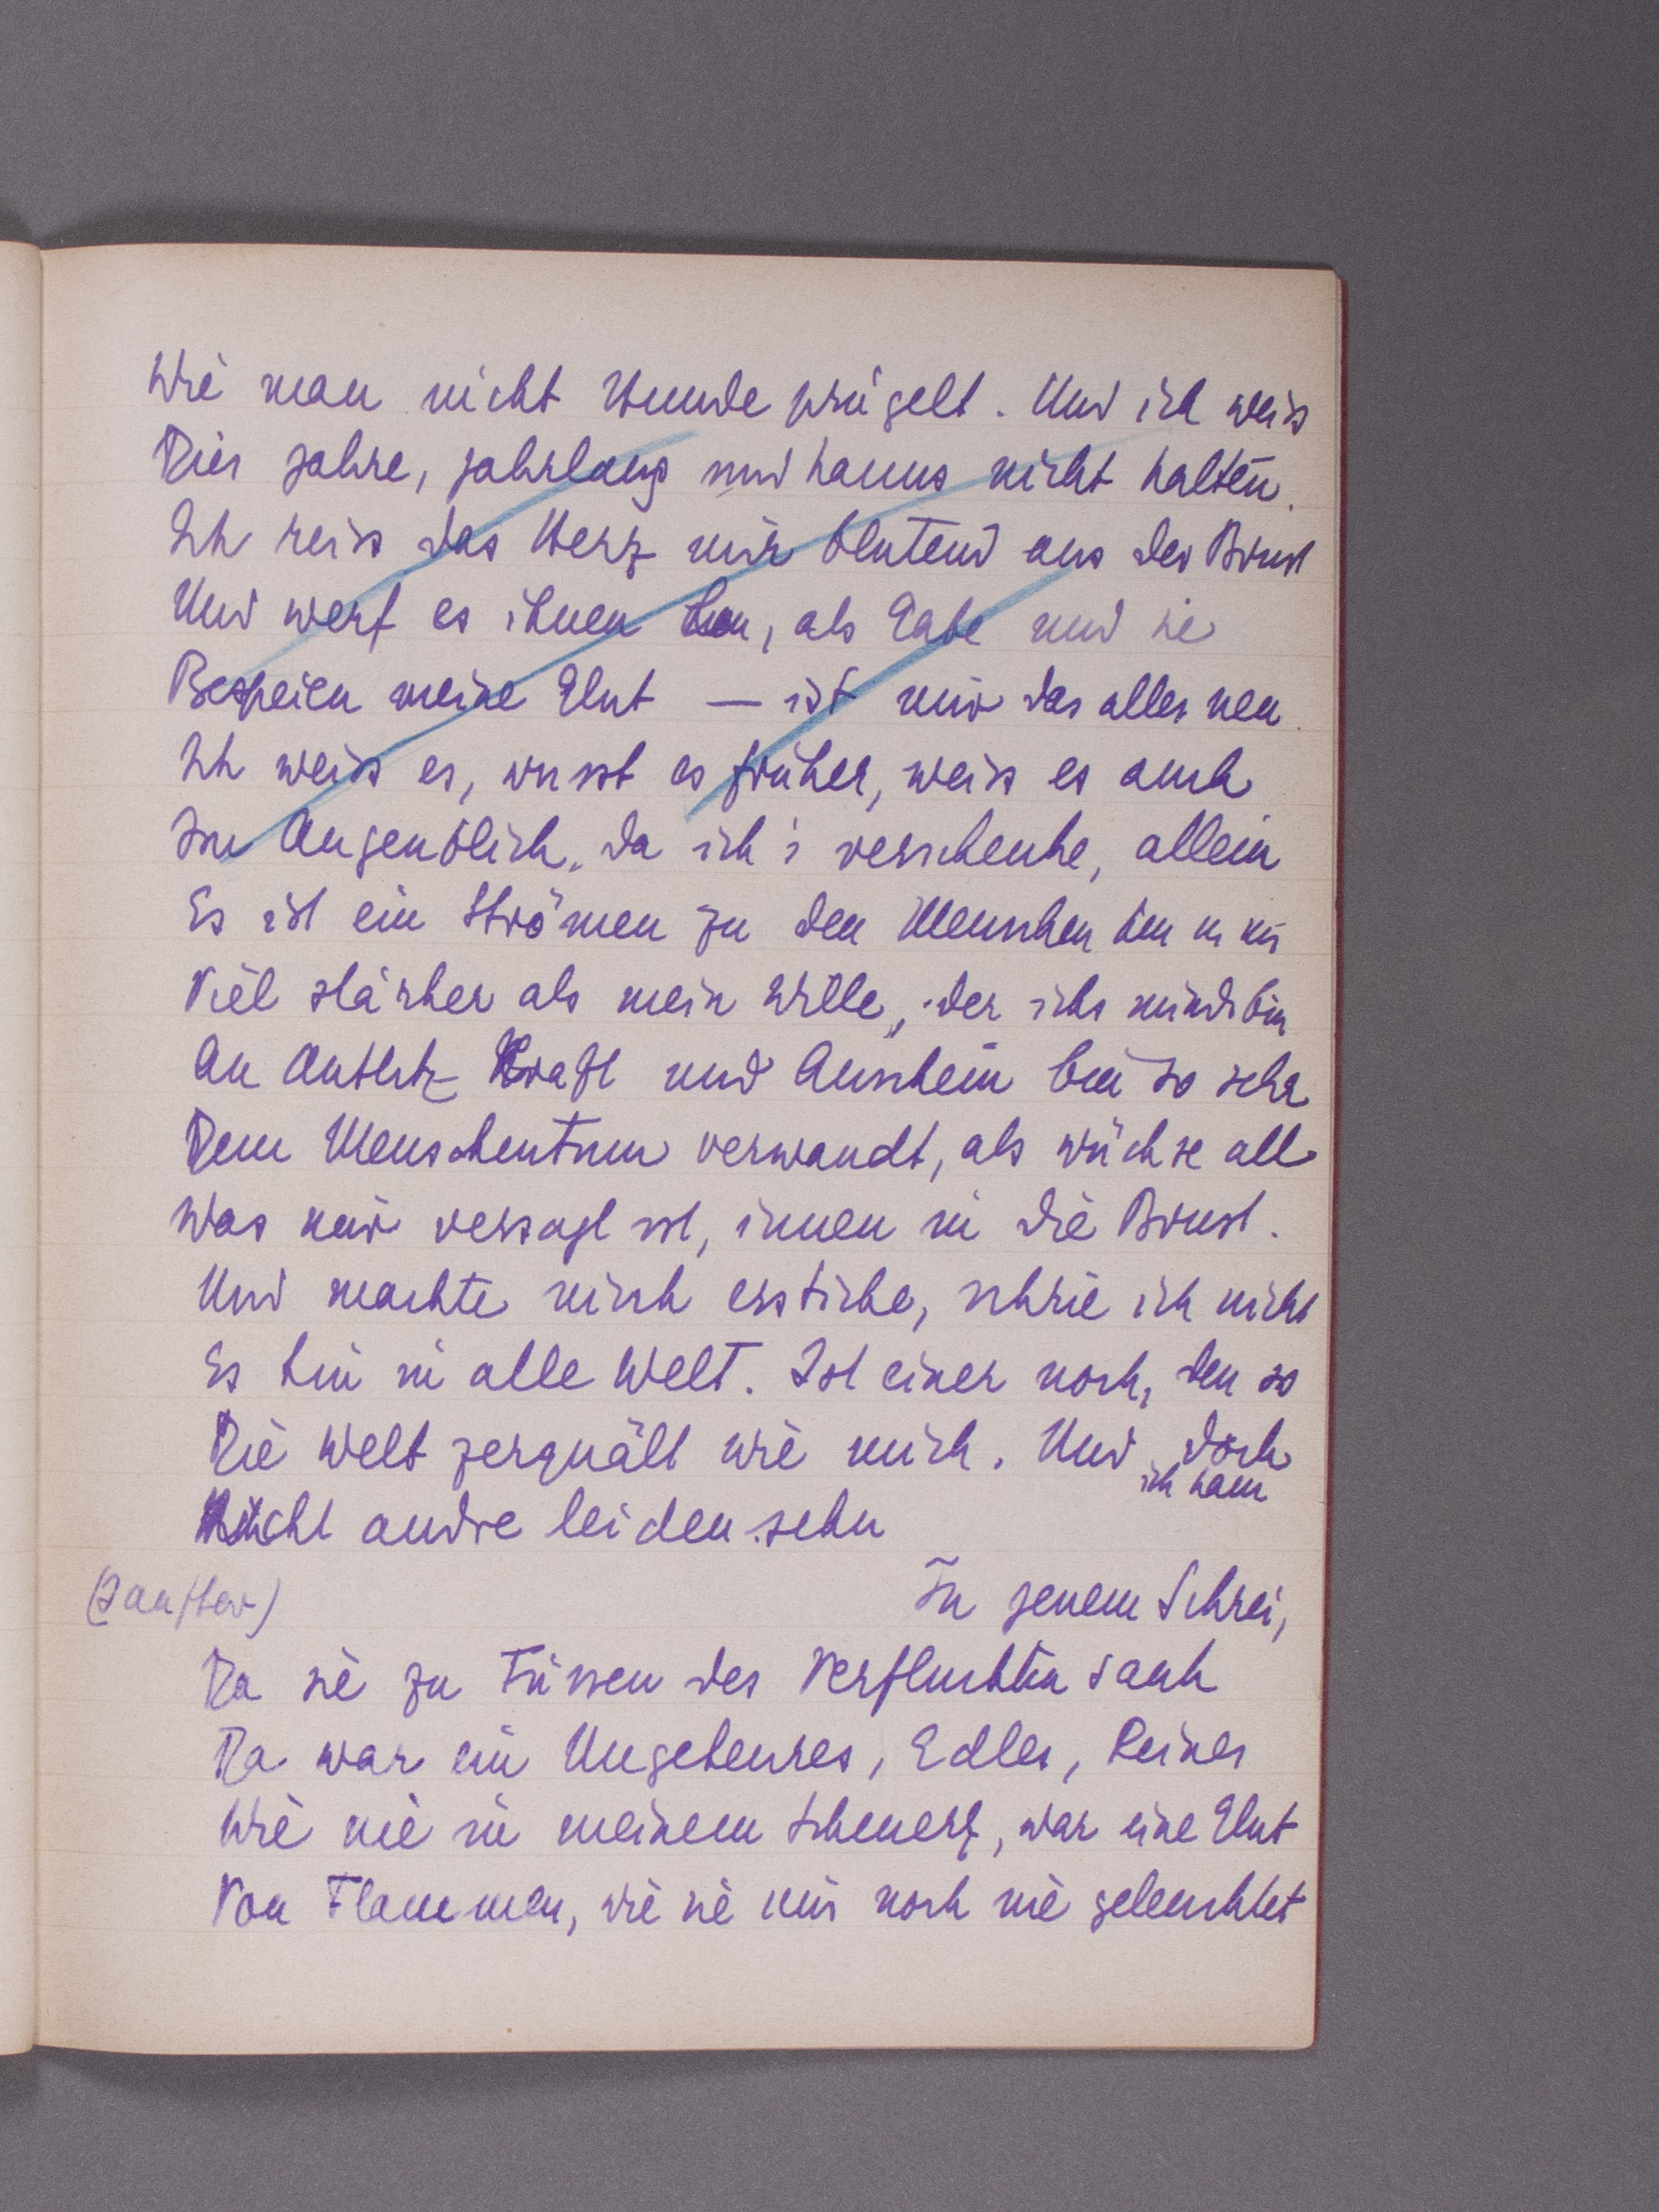 Wie man nicht Hunde prügelt. Und ich weis
Dies Jahre, jahrlang und kanns nicht halten.
Ich reiss das Herz mir blutend aus der Brust
Und werf es ihnen hin, als Gabe und sie
Bespeien meine Glut — ist mir das alles neu
Ich weiss es, wusst es früher, weiss es auch
Im Augenblick, da ich's verschenke, allein
Es ist ein Strömen zu den Menschen hin in mir
Viel stärker als mein Wille, der ichs nicht bin
An Antlitz Kraft und Anschein bin so sehr
Dem Menschentum verwandt, als wüchse all
Was mir versagt ist, innen in die Brust.
Und machte mich ersticke, schrie ich nicht
Es hin in alle Welt. Ist einer noch, den so
Die Welt zerquält wie mich. Und doch
ich kann
Nicht andre leiden sehn
(Sanfter)
In jenem Schrei,
Da sie zu Füssen des Verfluchten sank
Da war ein Ungeheures, Edles, Reines
Wie nie in meinem Schmerz, war eine Glut
Von Flammen, wie sie mir noch nie geleuchtet